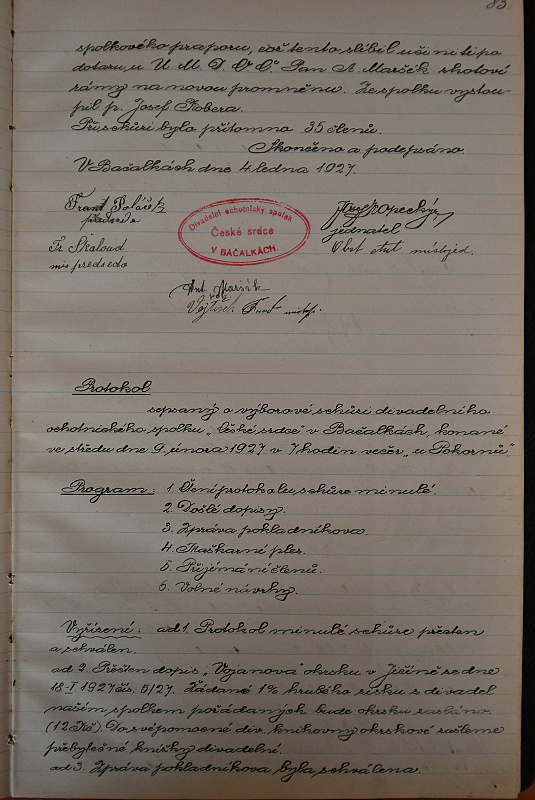 83.
spolkového praporu, což tento slíbil učiniti po
dotazu u Ú. M. D. O. Č. Pan A. Maršík zhotoví
rámy na novou proměnu. Ze spolku vystou-
pil p. Josef Kobera.
Při schůzi bylo přítomno 35 členů.
Skončeno a podepsáno.
V Bačalkách dne 4 ledna 1927.
předseda
jednatel
Fr Škaloud
místopředseda
Divadelní ochotnický spolek
České srdce
V BAČALKÁCH.
Ant. Maršík
Vojtíšek
Protokol
sepsaný o výborové schůzi divadelního
ochotnického spolku „České srdce" v Bačalkách, konané
ve středu dne 9. února 1927 v 7 hodin večer „u Pokorných"
Program: 1. Čtení protokolu schůze minulé.
2. Došlé dopisy.
3. Zpráva pokladníkova.
4. Maškarní ples.
5. Přijímání členů.
6. Volné návrhy.
Vyřízení: ad 1. Protokol minulé schůze přečten
a schválen.
ad 2. Přečten dopis „Vojanova" okrsku v Jičíně ze dne
18-I. 1927 čís. 5/27. Žádané 1% hrubého zisku z divadel
naším spolkem pořádaných bude okrsku zasláno
(12 Kč). Do svépomocné div. knihovny okrskové zašleme
přebytečné knížky divadelní.
ad 3. Zpráva pokladníkova byla schválena.